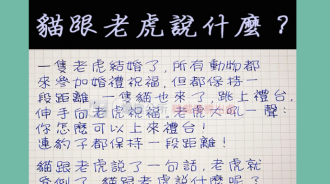 貓跟老虎說什麼？
一隻老虎結婚了,所有動物都
來參加婚禮祝福,但都保持一
段距離,一隻貓也來了,跳上禮台,
伸手向老虎祝福,老虎大吼一聲:
你怎麼可以上來禮台!
連豹子都保持一段距離!
貓跟老虎說了一句話,老虎就
昏倒了,貓跟老虎說什麼呢?